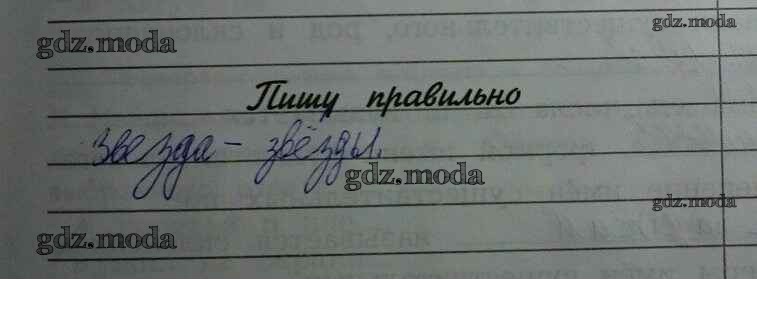 gdz.moda
gdz.moda
Пишу правильно
звезда - звёзды.
gdz.moda
gdz.moda
gdz.moda
называется